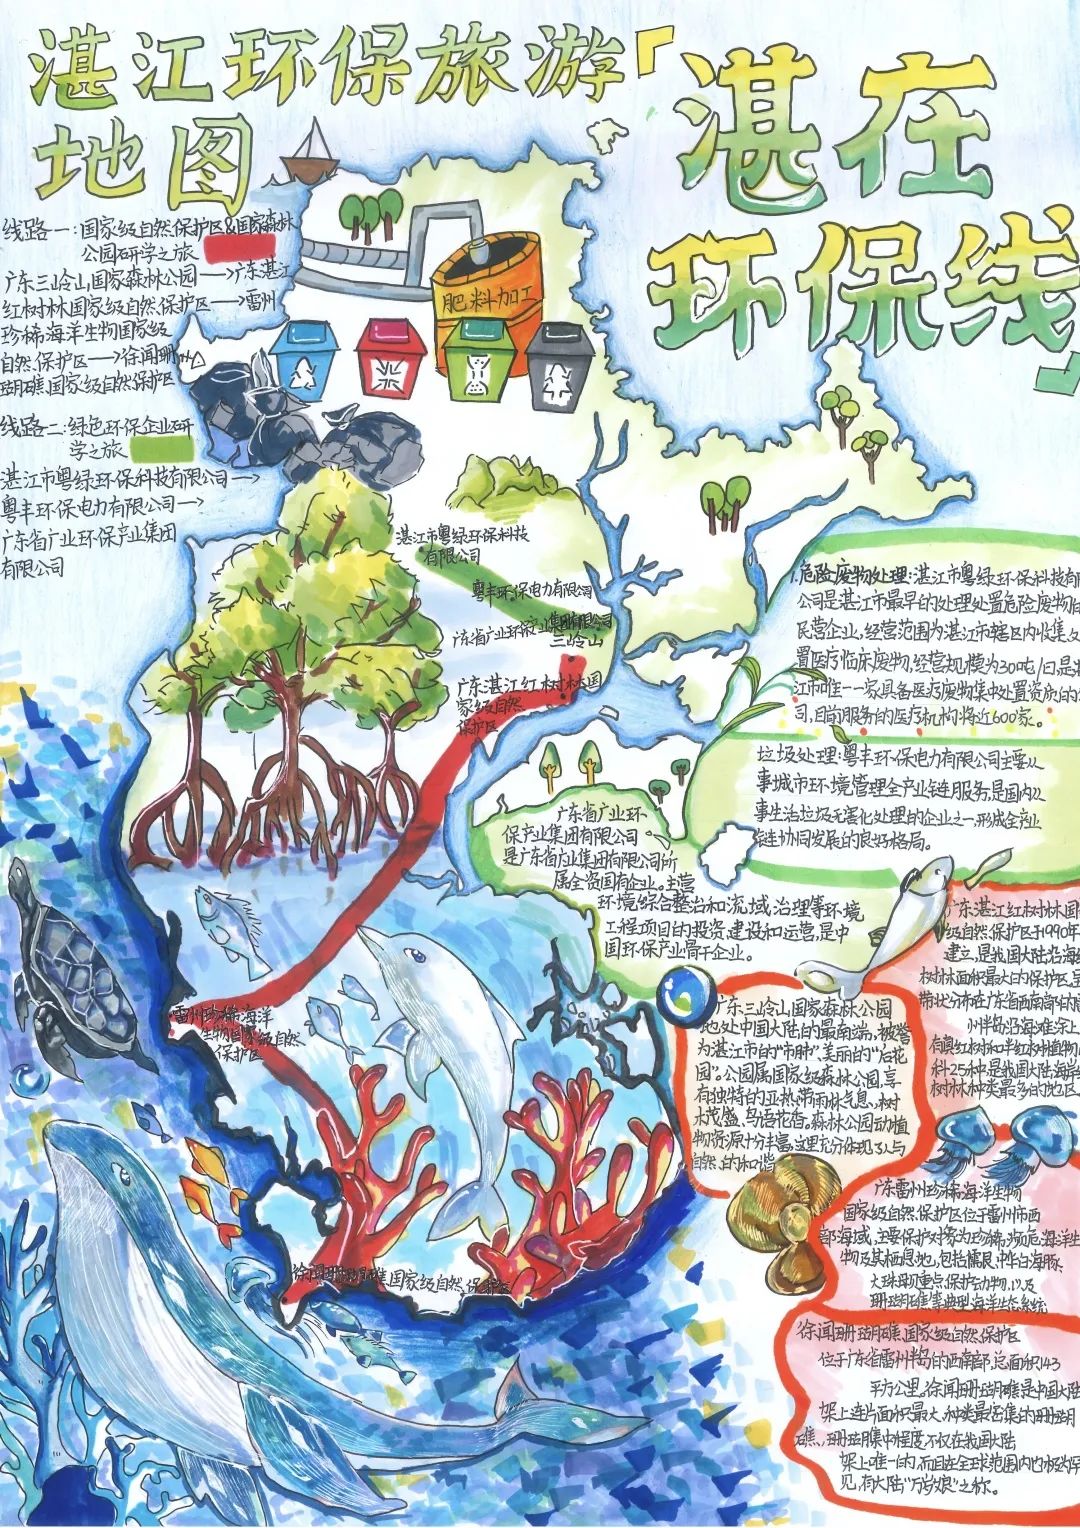 湛江环保旅游
地图
「湛在
环保线
」
线路一:国家级自然保护区&国家森林
公园研学之旅
广东三岭山国家森林公园→广东湛江
红树林国家级自然保护区→雷州
珍稀海洋生物国家级
自然保护区→徐闻珊
瑚礁国家级自然保护区
线路二:绿色环保企业研
学之旅
湛江市粤绿环保科技有限公司→
粤丰环保电力有限公司→
广东省广业环保产业集团
有限公司
肥料加工
湛江市粤绿环保科技
有限公司
粤丰环保电力有限公司
广东省广业环保产业集团有限公司
三岭山
广东湛江红树林国
家级自然
保护区
雷州珍稀海洋
生物国家级自然
保护区
徐闻珊瑚礁国家级自然保护区
1.危险废物处理:湛江市粤绿环保科技有
公司是湛江市最早的处理处置危险废物
民营企业,经营范围为湛江市辖区内收集
置医疗临床废物,经营规模为30吨/日,是
江市唯一一家具备医疗废物集中处置资质的
司,目前服务的医疗机构将近600家。
垃圾处理:粤丰环保电力有限公司主要从
事城市环境管理全产业链服务,是国内从
事生活垃圾无害化处理的企业之一,形成全产业
链协同发展的良好格局。
广东省广业环
保产业集团有限公司
是广东省广业集团有限公司所
属全资国有企业。主营
环境综合整治和流域治理等环境
工程项目的投资、建设和运营,是中
国环保产业骨干企业。
广东三岭山国家森林公园
地处中国大陆的最南端,被誉
为湛江市的"市肺"、美丽的"后花
园"。公园属国家级森林公园,享
有独特的亚热带雨林气息、树
木茂盛、鸟语花香。森林公园动植
物资源十分丰富,这里充分体现了人与
自然的和谐
广东湛江红树林国
级自然保护区于1990年
建立,是我国大陆沿海
树林面积最大的保护区,呈
带状分布在广东省西南部
州半岛沿海滩涂上
有真红树和半红树植物
科25种,是我国大陆海岸
树林种类最多的地区
广东雷州珍稀海洋生物
国家级自然保护区位于雷州市西
部海域,主要保护对象为珍稀濒危海洋生
物及其栖息地,包括儒艮、中华白海豚、
大珠母贝重点保护动物,以及
珊瑚礁等典型海洋生态系统
徐闻珊瑚礁国家级自然保护区
位于广东省雷州半岛的西南部,总面积143
平方公里。徐闻珊瑚礁是中国大陆
架上连片面积最大、种类最密集的珊瑚
礁,珊瑚集中程度不仅在我国大陆
架上唯一的,而且在全球范围内也极为罕
见,有大陆"万岁娘"之称。